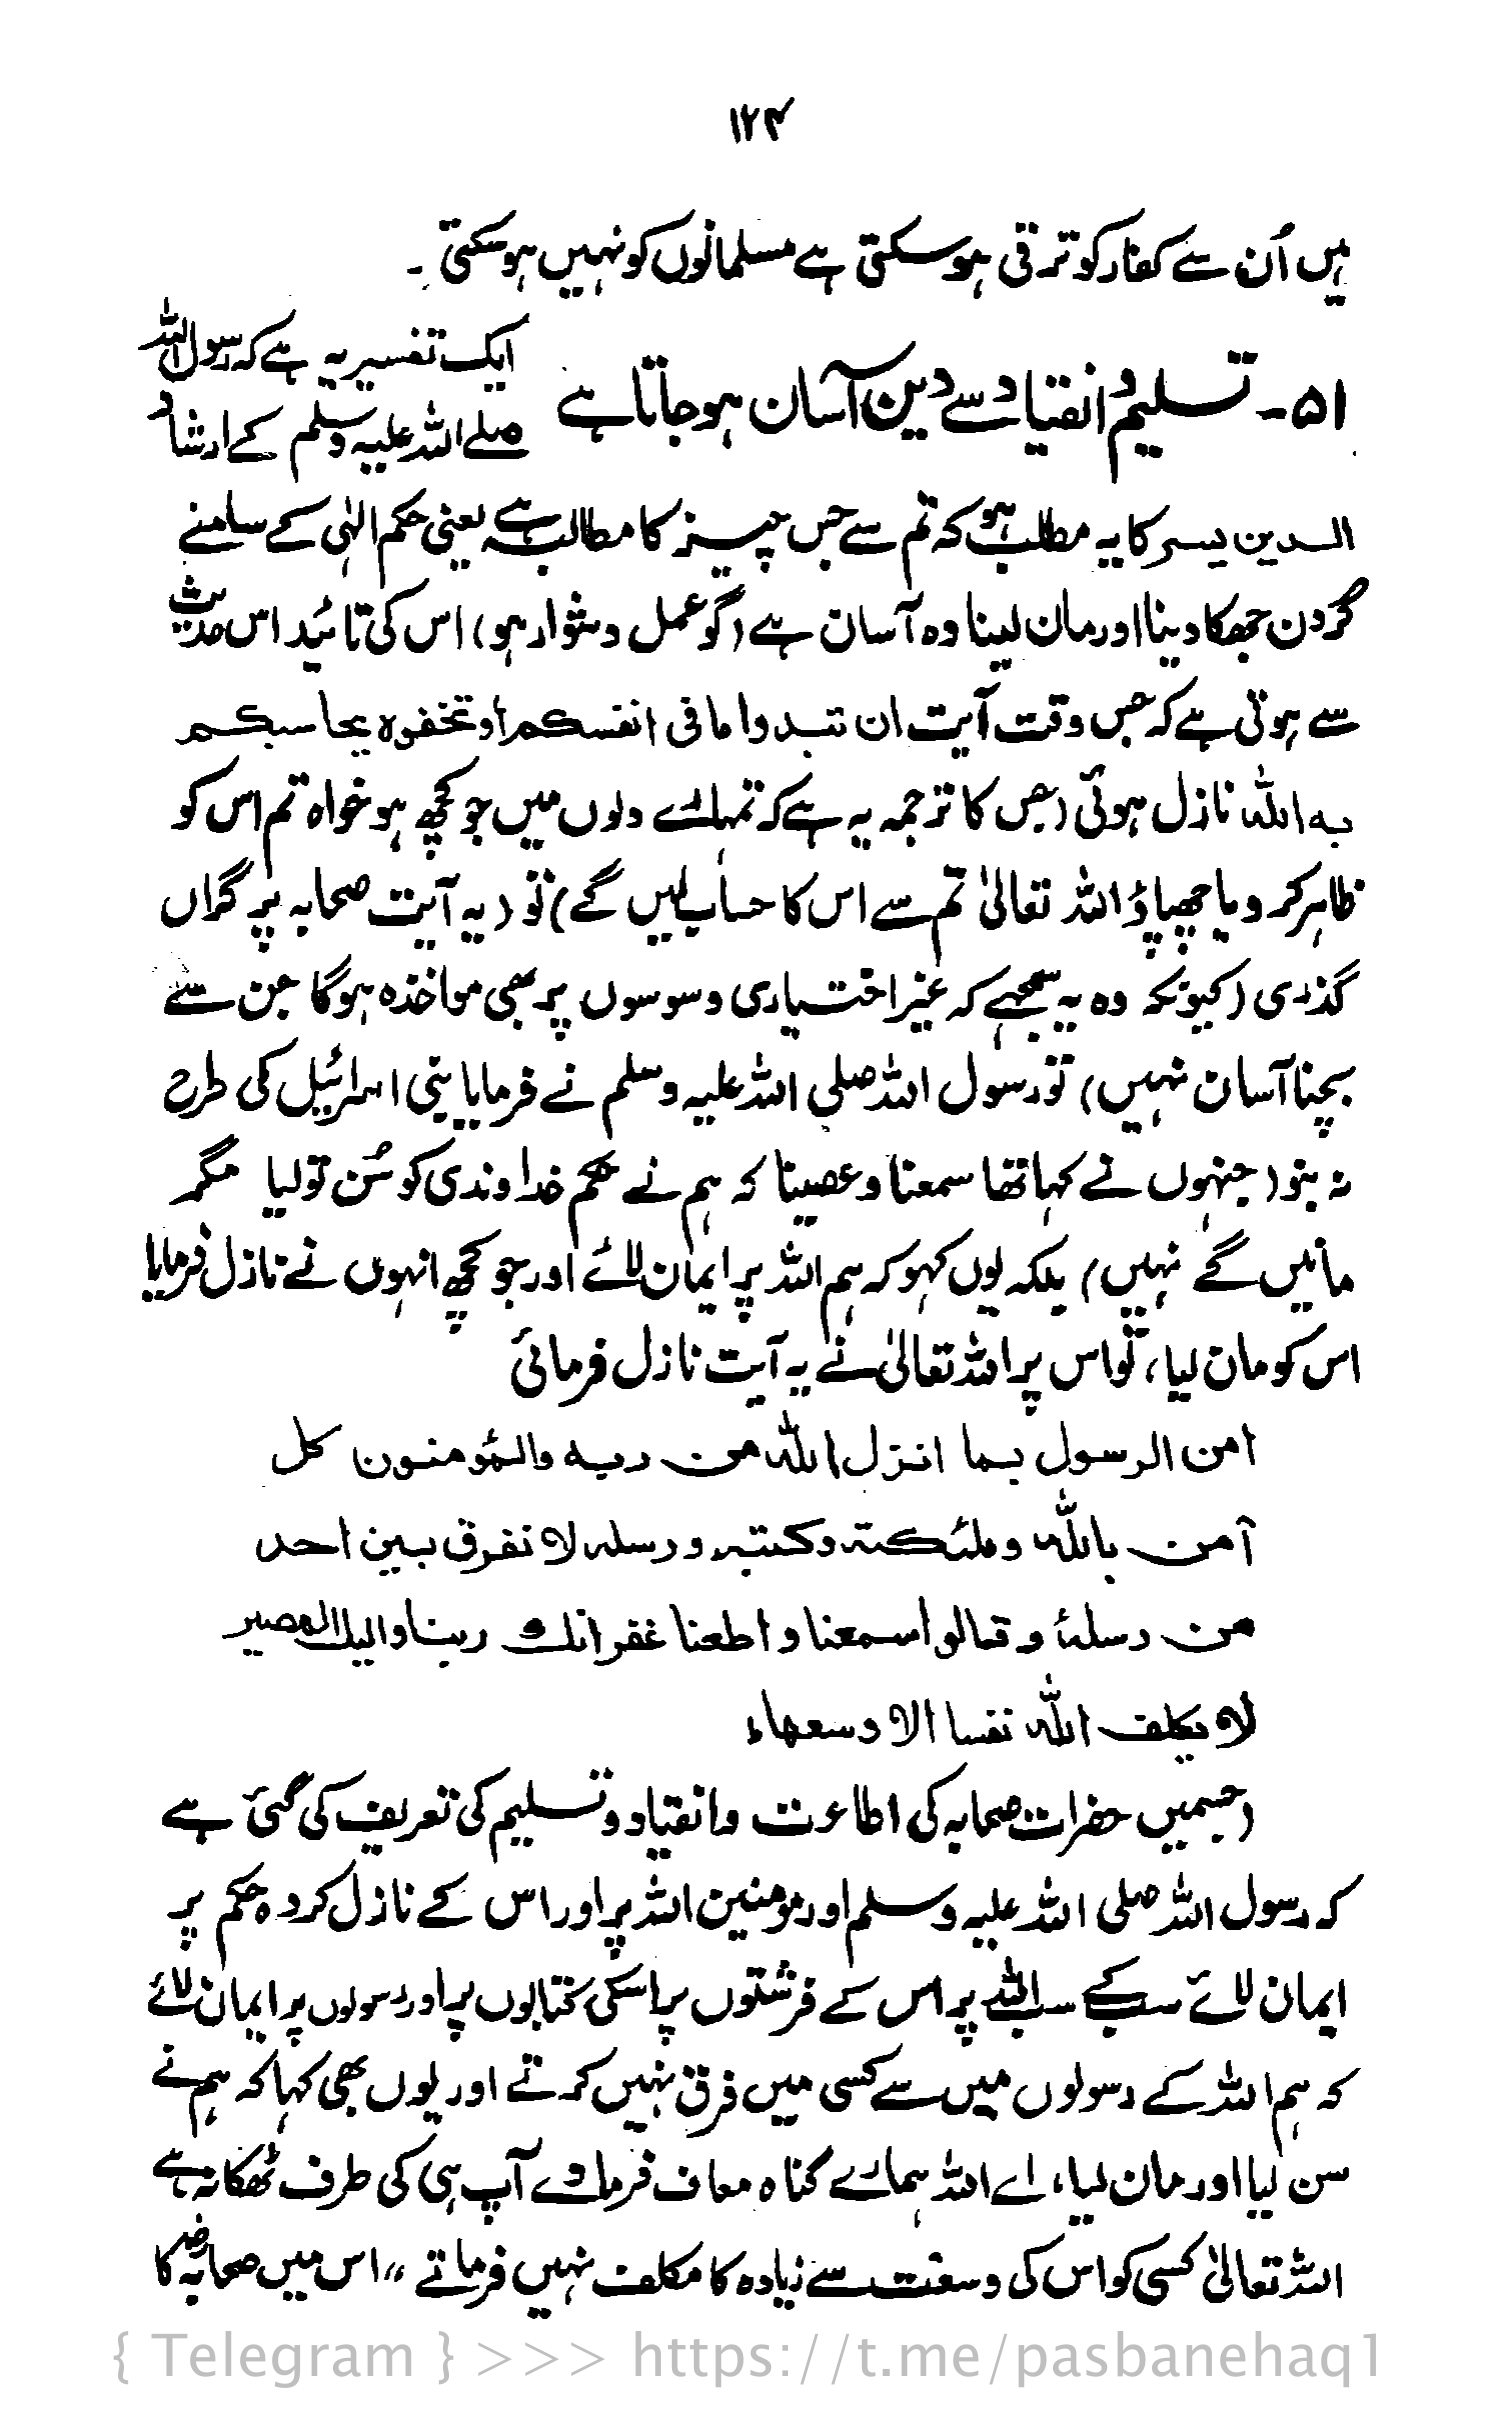 ۱۲۴
میں اُن سے کفار کو ترقی ہوسکتی ہے مسلمانوں کو نہیں ہوسکتی۔
۵۱- تسلیم و انقیاد سے دین آسان ہوجاتا ہے
ایک تفسیر یہ ہے کہ رسول اللہ
صلے اللہ علیہ وسلم کے ارشاد
الدین یسر کا یہ مطلب ہو کہ تم سے جس چیز کا مطالبہ ہے یعنی حکم الٰہی کے سامنے
گردن جھکا دینا اور مان لینا وہ آسان ہے (گو عمل دشوار ہو) اس کی تائید اس حدیث
سے ہوتی ہے کہ جس وقت آیت ان تبدوا ما فی انفسکم او تخفوہ یحاسبکم
بہ اللہ نازل ہوئی (جس کا ترجمہ یہ ہے کہ تمہارے دلوں میں جو کچھ ہو خواہ تم اس کو
ظاہر کرو یا چھپاؤ اللہ تعالیٰ تم سے اس کا حساب لیں گے) تو (یہ آیت صحابہ پر گراں
گذری (کیونکہ وہ یہ سمجھے کہ غیر اختیاری وسوسوں پر بھی مواخذہ ہوگا جن سے
بچنا آسان نہیں) تو رسول اللہ صلی اللہ علیہ وسلم نے فرمایا بنی اسرائیل کی طرح
نہ بنو (جنہوں نے کہا تھا سمعنا و عصینا کہ ہم نے حکم خداوندی کو سُن تو لیا مگر
مانیں گے نہیں) بلکہ یوں کہو کہ ہم اللہ پر ایمان لائے اور جو کچھ انہوں نے نازل فرمایا
اس کو مان لیا، تو اس پر اللہ تعالیٰ نے یہ آیت نازل فرمائی
امن الرسول بما انزل اللہ من ربہ والمؤمنون کل
آمن باللہ وملئکتہ وکتبہ ورسلہ لا نفرق بین احد
من رسلہ وقالوا سمعنا واطعنا غفرانک ربنا والیک المصیر
لا یکلف اللہ نفسا الا وسعہاء
(جسمیں حضرات صحابہ کی اطاعت و انقیاد و تسلیم کی تعریف کی گئی ہے
کہ رسول اللہ صلی اللہ علیہ وسلم اور مومنین اللہ پر اور اس کے نازل کردہ حکم پر
ایمان لائے سب کے سب اللہ پر اس کے فرشتوں پر اسکی کتابوں پر اور رسولوں پر ایمان لائے
کہ ہم اللہ کے رسولوں میں سے کسی میں فرق نہیں کرتے اور یوں بھی کہا کہ ہم نے
سن لیا اور مان لیا، اے اللہ ہمارے گناہ معاف فرما دے آپ ہی کی طرف ٹھکانہ ہے
اللہ تعالیٰ کسی کو اس کی وسعت سے زیادہ کا مکلف نہیں فرماتے ،، اس میں صحابہؓ کا
{ Telegram } >>> https://t.me/pasbanehaq1